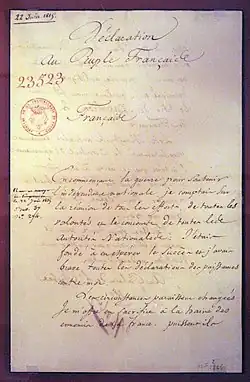 22 Juin 1815.
Déclaration
Au Peuple Français
23523
Français
En commençant la guerre pour soutenir
l'indépendance nationale je comptais sur
la réunion de tous les efforts de toutes les
volontés et le concours de toutes les
autorités Nationales. J'étais
fondé à en espérer le succès et j'avais
bravé toutes les déclarations des puissances
contre moi
Les circonstances paraissent changées
Je m'offre en sacrifice à la haine des
ennemis de la france. puissent ils